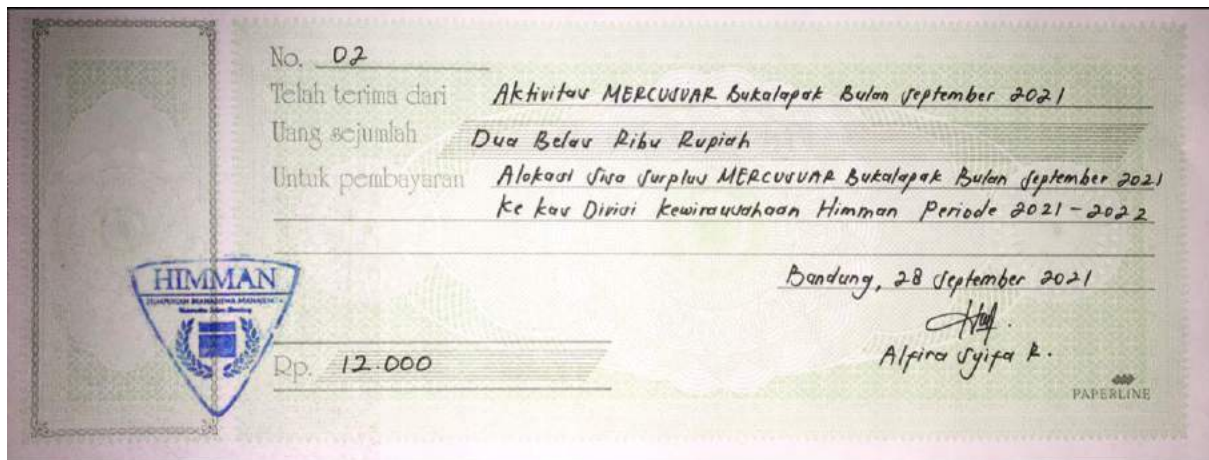 No. 02
Telah terima dari Aktivitas MERCUSUAR Bukalapak Bulan September 2021
Uang sejumlah Dua Belas Ribu Rupiah
Untuk pembayaran Alokasi Sisa Surplus MERCUSUAR Bukalapak Bulan September 2021
Ke kas Divisi Kewirausahaan Himman Periode 2021 - 2022
Bandung, 28 September 2021
HIMMAN
HIMPUNAN MAHASISWA MANAJEMEN
Rp. 12.000
Alfira Syifa R.
PAPERLINE